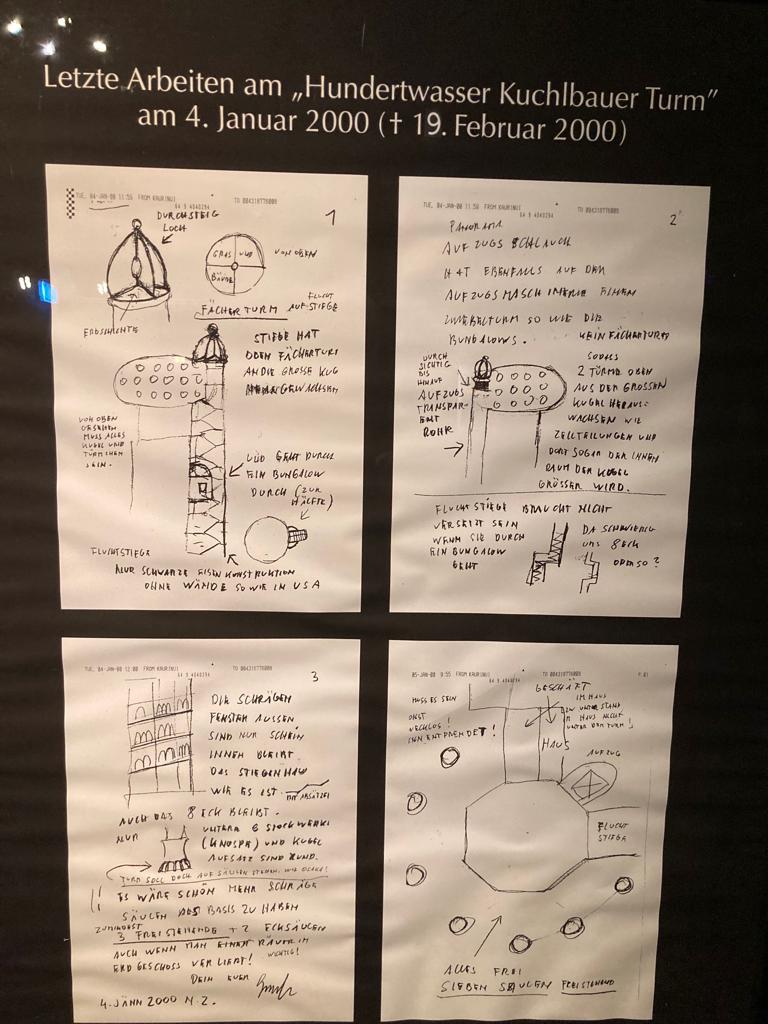 Letzte Arbeiten am „Hundertwasser Kuchlbauer Turm”
am 4. Januar 2000 († 19. Februar 2000)
TUE, 04-JAN-00 11:56 FROM KAURINUI
64 9 4040294
TO 004318776009
1
DURCHSTEIG
LOCH
GRAS UND
BÄUME
VON OBEN
ERDSCHICHTE
FÄCHERTURM
FLUCHT
AUF STIEGE
STIEGE HAT
OBEN FÄCHERTURM
AN DIE GROSSE KUG
VON OBEN
GESEHEN
MUSS ALLES
KUGEL UND
TÜRMCHEN
SEIN.
UND GEHT DURCH
EIN BUNGALOW
DURCH (ZUR
HÄLFTE)
FLUCHTSTIEGE
NUR SCHWARZE EISENKONSTRUKTION
OHNE WÄNDE SO WIE IN USA
TUE, 04-JAN-00 11:56 FROM KAURINUI
64 9 4040294
TO 004318776009
2
PANORAMA
AUFZUGSSCHLAUCH
HAT EBENFALLS AUF DER
AUFZUGSMASCHINERIE EINEN
ZWIEBELTURM SO WIE DIE
BUNGALOWS.
KEIN FÄCHERTURM
DURCH
SICHTIG
BIS
HINAUF
AUFZUGS
TRANSPAR
ENT
ROHR
SODASS
2 TÜRME OBEN
AUS DER GROSSEN
KUGEL HERAUS=
WACHSEN WIE
ZELLTEILUNGEN UND
DORT SOGAR DER INNEN
RAUM DER KUGEL
GRÖSSER WIRD.
FLUCHTSTIEGE BRAUCHT NICHT
VERSETZT SEIN
WENN SIE DURCH
EIN BUNGALOW
GEHT
DA SCHWIERIG
UNS 8 ECK
ODER SO?
TUE, 04-JAN-00 12:00 FROM KAURINUI
64 9 4040294
TO 004318776009
3
DIE SCHRÄGEN
FENSTER AUSSEN
SIND NUR SCHEIN
INNEN BLEIBT
DAS STIEGENHAUS
WIE ES IST
MIT ABSÄTZEN
AUCH DAS 8 ECK BLEIBT.
NUR
UNTERE 6 STOCKWERKE
(KNOSPE) UND KUGEL
AUFSATZ SIND RUND.
TURM SOLL DOCH AUF SÄULEN STEHEN. WIE OSAKA!
ES WÄRE SCHÖN MEHR SCHRÄGE
SÄULEN ALS BASIS ZU HABEN
ZUMINDEST
3 FREISTEHENDE + 2 ECKSÄULEN
AUCH WENN MAN EINEN RÄUME IM
ERDGESCHOSS VERLIERT!
WICHTIG!
DEIN EUER
4. JÄNN 2000 N.Z.
05-JAN-00 9:55 FROM KAURINUI
64 9 4040294
TO 004318776009
P.01
MUSS ES SEIN
GESCHÄFT
IM HAUS
UNTERSTAND
IM HAUS NICHT
UNTER DEM TURM!
HAUS
AUFZUG
FLUCHT
STIEGE
ALLES FREI
SIEBEN SÄULEN FREISTEHEND